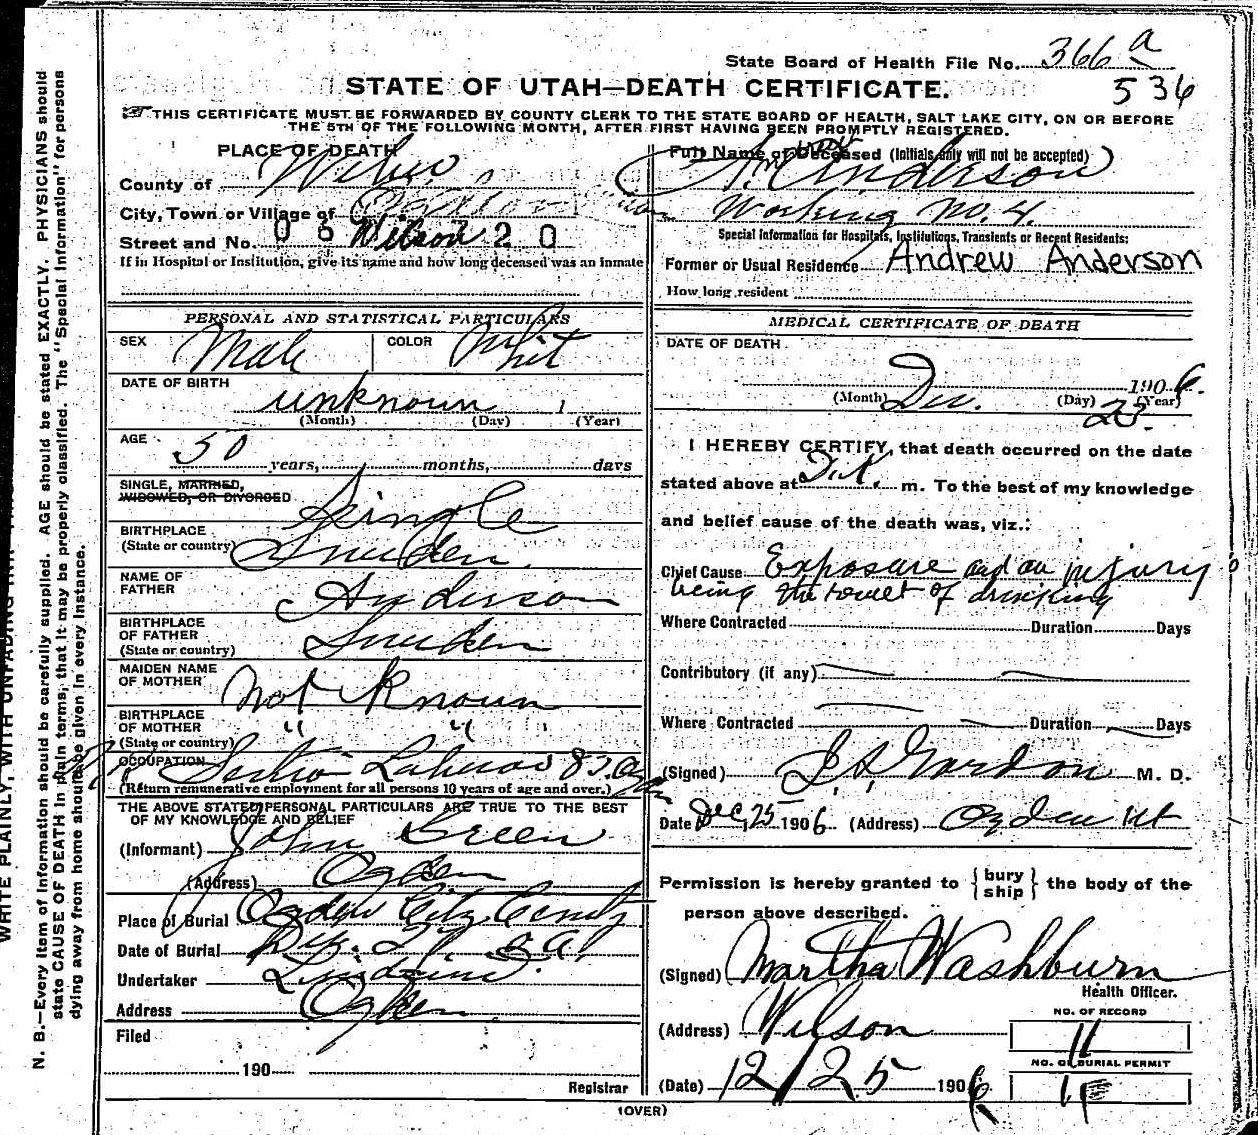 State Board of Health File No. 366 a
536
STATE OF UTAH—DEATH CERTIFICATE.
THIS CERTIFICATE MUST BE FORWARDED BY COUNTY CLERK TO THE STATE BOARD OF HEALTH, SALT LAKE CITY, ON OR BEFORE
THE 5TH OF THE FOLLOWING MONTH, AFTER FIRST HAVING BEEN PROMPTLY REGISTERED.
PLACE OF DEATH
County of Weber
City, Town or Village of
Street and No. 0 6 Wilson 2 0
If in Hospital or Institution, give its name and how long deceased was an inmate
PERSONAL AND STATISTICAL PARTICULARS
SEX Male COLOR Whit
DATE OF BIRTH
unknown 1
(Month) (Day) (Year)
AGE 50
years, months, days
SINGLE, MARRIED,
WIDOWED, OR DIVORCED Single
BIRTHPLACE
(State or country) Sweden
NAME OF
FATHER Anderson
BIRTHPLACE
OF FATHER
(State or country) Sweden
MAIDEN NAME
OF MOTHER Not Known
BIRTHPLACE
OF MOTHER
(State or country) " "
OCCUPATION
(Return remunerative employment for all persons 10 years of age and over.)
THE ABOVE STATED PERSONAL PARTICULARS ARE TRUE TO THE BEST
OF MY KNOWLEDGE AND BELIEF
(Informant) John Green
(Address) Ogden
Place of Burial Ogden City
Date of Burial
Undertaker
Address Ogden
Filed
190
Registrar
Full Name of Deceased (Initials only will not be accepted)
Anderson
Working
Special Information for Hospitals, Institutions, Transients or Recent Residents:
Former or Usual Residence Andrew Anderson
How long resident
MEDICAL CERTIFICATE OF DEATH
DATE OF DEATH
Dec. 25. 1906.
(Month) (Day) (Year)
I HEREBY CERTIFY, that death occurred on the date
stated above at m. To the best of my knowledge
and belief cause of the death was, viz.:
Chief Cause Exposure and an injury
being the result of drinking
Where Contracted Duration Days
Contributory (if any)
Where Contracted Duration Days
(Signed) Gordon M. D.
Date Dec 25 1906 (Address) Ogden Ut
Permission is hereby granted to { bury
ship } the body of the
person above described.
(Signed) Martha Washburn
Health Officer.
(Address) Wilson
NO. OF RECORD
11
NO. OF BURIAL PERMIT
(Date) 12/25 1906
(OVER)
WRITE PLAINLY, WITH UNFADING INK
N. B.—Every item of information should be carefully supplied. AGE should be stated EXACTLY. PHYSICIANS should
state CAUSE OF DEATH in plain terms, that it may be properly classified. The "Special Information" for persons
dying away from home should be given in every instance.